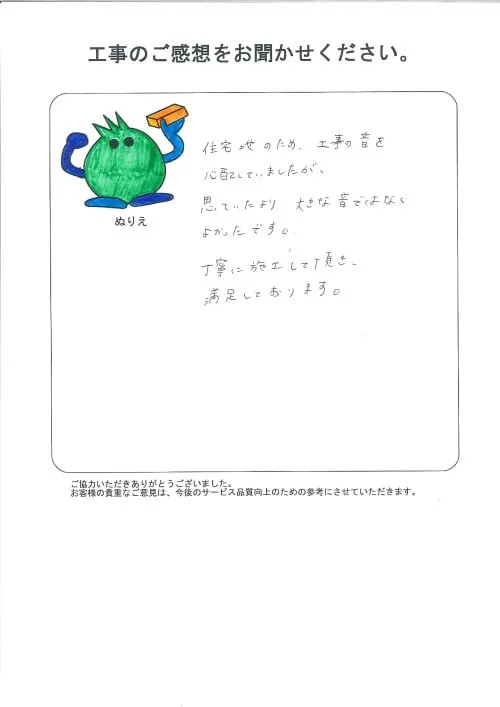 工事のご感想をお聞かせください。
住宅地のため、工事の音を
心配していましたが、
思っていたより 大きな音ではなく
よかったです。
丁寧に施工して頂き、
満足しております。
ぬりえ
ご協力いただきありがとうございました。
お客様の貴重なご意見は、今後のサービス品質向上のための参考にさせていただきます。